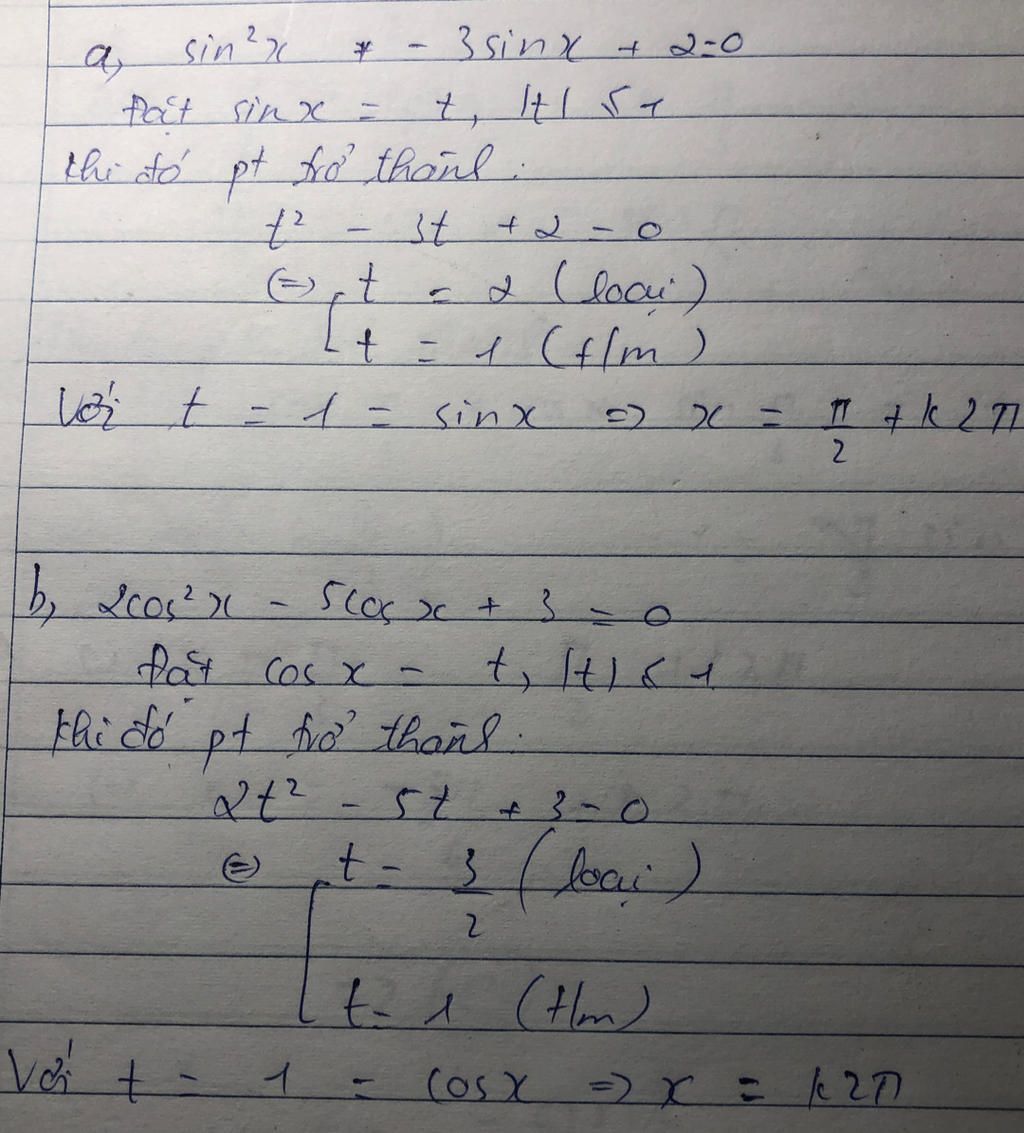 a, sin²x - 3sinx + 2=0
Đặt sinx = t, |t| ≤ 1
Khi đó pt trở thành:
t² - 3t + 2 = 0
(=) [ t = 2 (loại)
t = 1 (t/m)
Với t = 1 = sinx => x = π/2 + k2π
b, 2cos²x - 5cosx + 3 = 0
Đặt cosx = t, |t| ≤ 1
Khi đó pt trở thành:
2t² - 5t + 3 = 0
(=) [ t = 3/2 (loại)
t = 1 (t/m)
Với t = 1 = cosx => x = k2π